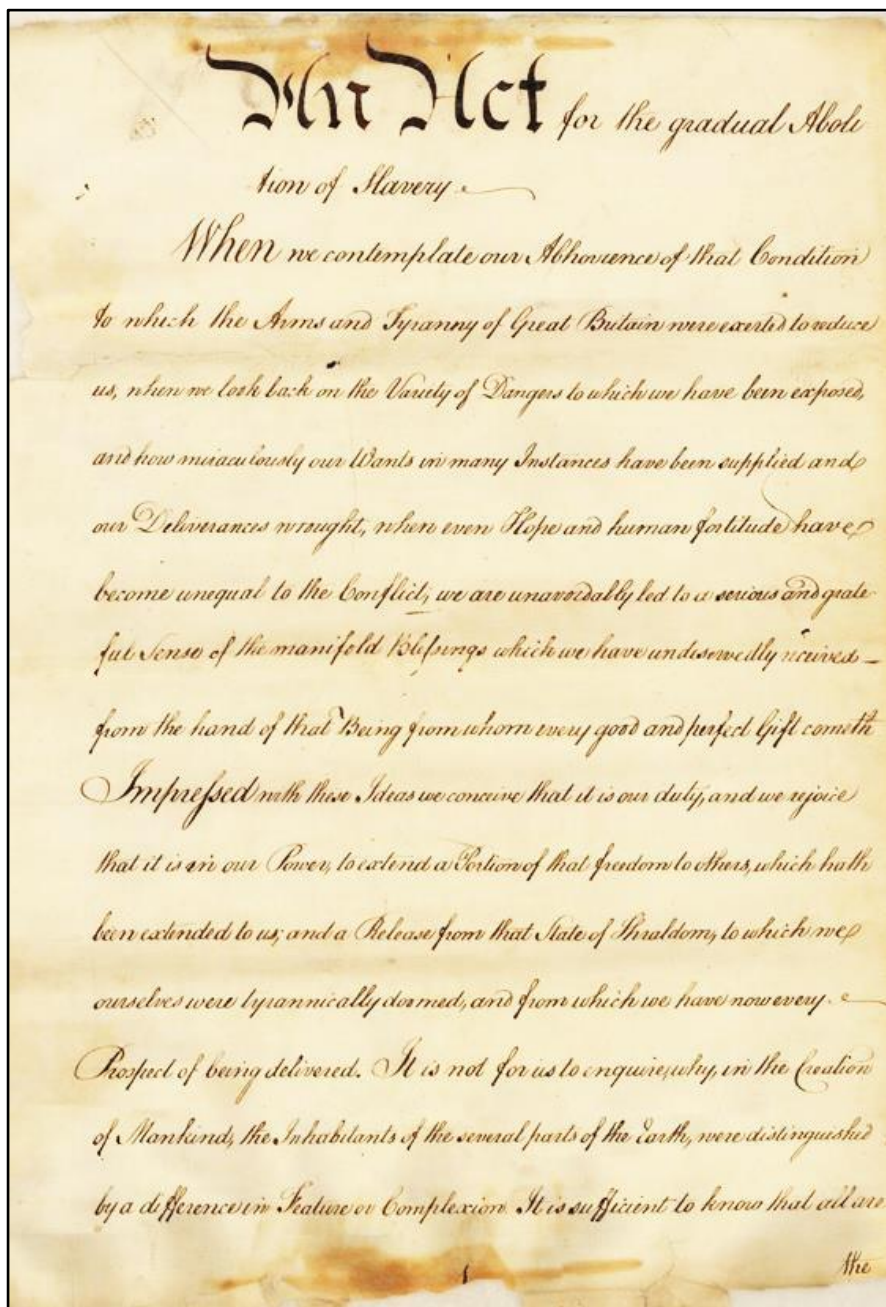 An Act for the gradual Aboli
tion of Slavery
When we contemplate our Abhorrence of that Condition
to which the Arms and Tyranny of Great Britain were exerted to reduce
us, when we look back on the Variety of Dangers to which we have been exposed,
and how miraculously our Wants in many Instances have been supplied and
our Deliverances wrought, when even Hope and human fortitude have
become unequal to the Conflict, we are unavoidably led to a serious and grate
ful Sense of the manifold Blessings which we have undeservedly received
from the hand of that Being from whom every good and perfect Gift cometh
Impressed with these Ideas we conceive that it is our duty, and we rejoice
that it is in our Power, to extend a Portion of that freedom to others, which hath
been extended to us; and a Release from that State of Thraldom, to which we
ourselves were tyrannically doomed, and from which we have now every
Prospect of being delivered. It is not for us to enquire, why, in the Creation
of Mankind, the Inhabitants of the several parts of the Earth, were distinguished
by a difference in Feature or Complexion. It is sufficient to know that all are
the